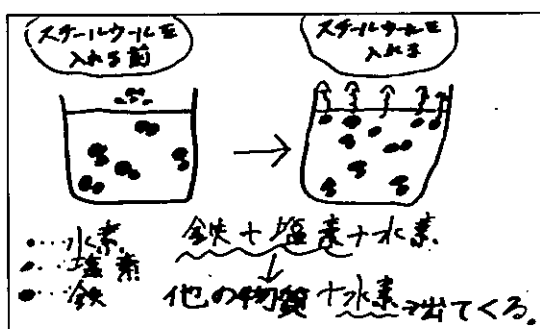 スチールウールを
入れる前
スチールウールを
入れる
・・・・水素
・・・・塩素
●・・・鉄
鉄+塩素+水素
↓
他の物質+水素→出てくる。